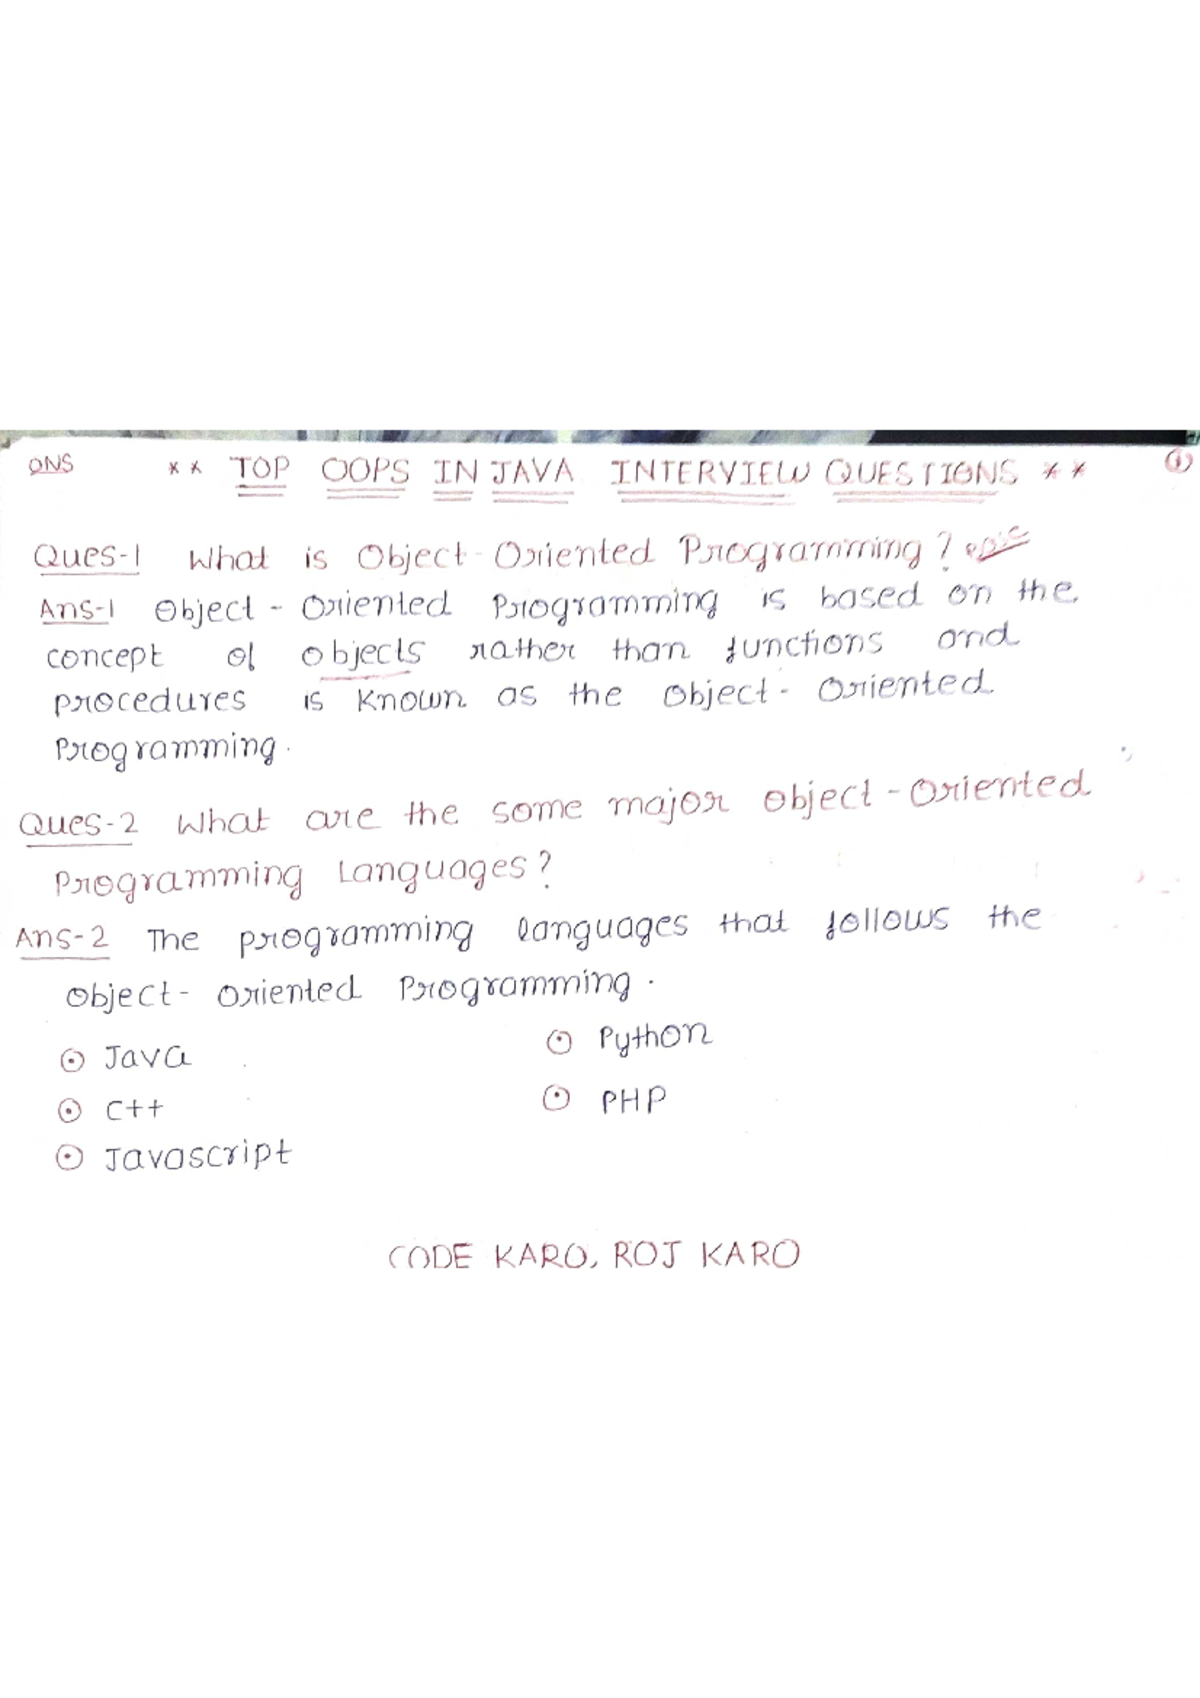 QNS ** TOP OOPS IN JAVA INTERVIEW QUESTIONS ** ①
Ques-1 What is Object-Oriented Programming?
Ans-1 Object-Oriented Programming is based on the
concept of objects rather than functions and
procedures is known as the Object-Oriented
Programming.
Ques-2 What are the some major object-oriented
Programming Languages?
Ans-2 The programming languages that follows the
Object-oriented Programming.
⊙ Java ⊙ Python
⊙ C++ ⊙ PHP
⊙ Javascript
CODE KARO, ROJ KARO